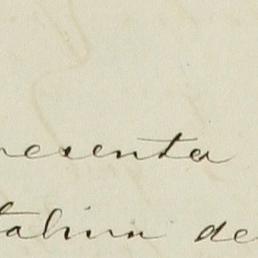 resenta
talina de